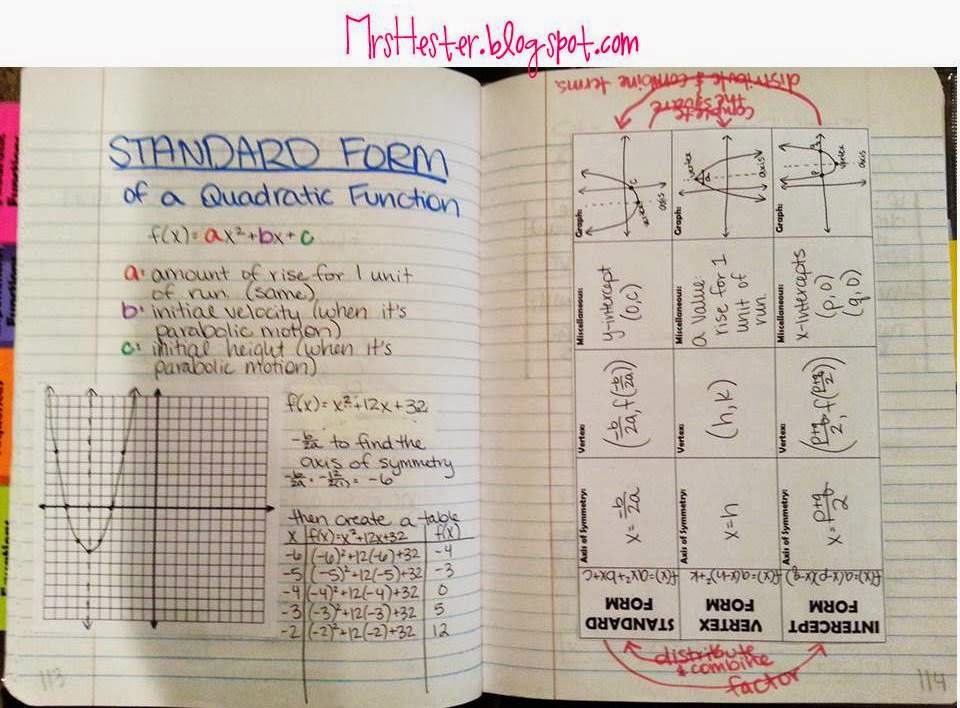 MrsHester.blogspot.com
STANDARD FORM
of a Quadratic Function
f(x)=ax²+bx+c
a: amount of rise for 1 unit
of run (same)
b: initial velocity (when it's
parabolic motion)
c: initial height (when it's
parabolic motion)
f(x)=x²+12x+32
-b/2a to find the
axis of symmetry
-b/2a = -12/2(1) = -6
then create a table
x | f(x)=x²+12x+32 | f(x)
-6 | (-6)²+12(-6)+32 | -4
-5 | (-5)²+12(-5)+32 | -3
-4 | (-4)²+12(-4)+32 | 0
-3 | (-3)²+12(-3)+32 | 5
-2 | (-2)²+12(-2)+32 | 12
113
distribute & combine terms
complete
the square
STANDARD
FORM
f(x)=ax²+bx+c
Axis of Symmetry:
x=-b/2a
Vertex:
(-b/2a, f(-b/2a))
Miscellaneous:
y-intercept
(0,c)
Graph:
c
vertex
axis
VERTEX
FORM
f(x)=a(x-h)²+k
Axis of Symmetry:
x=h
Vertex:
(h,k)
Miscellaneous:
a value:
rise for 1
unit of
run.
Graph:
vertex
a
axis
INTERCEPT
FORM
f(x)=a(x-p)(x-q)
Axis of Symmetry:
x=p+q/2
Vertex:
(p+q/2, f(p+q/2))
Miscellaneous:
x-intercepts
(p,0)
(q,0)
Graph:
p
q
vertex
axis
distribute
& combine
factor
114